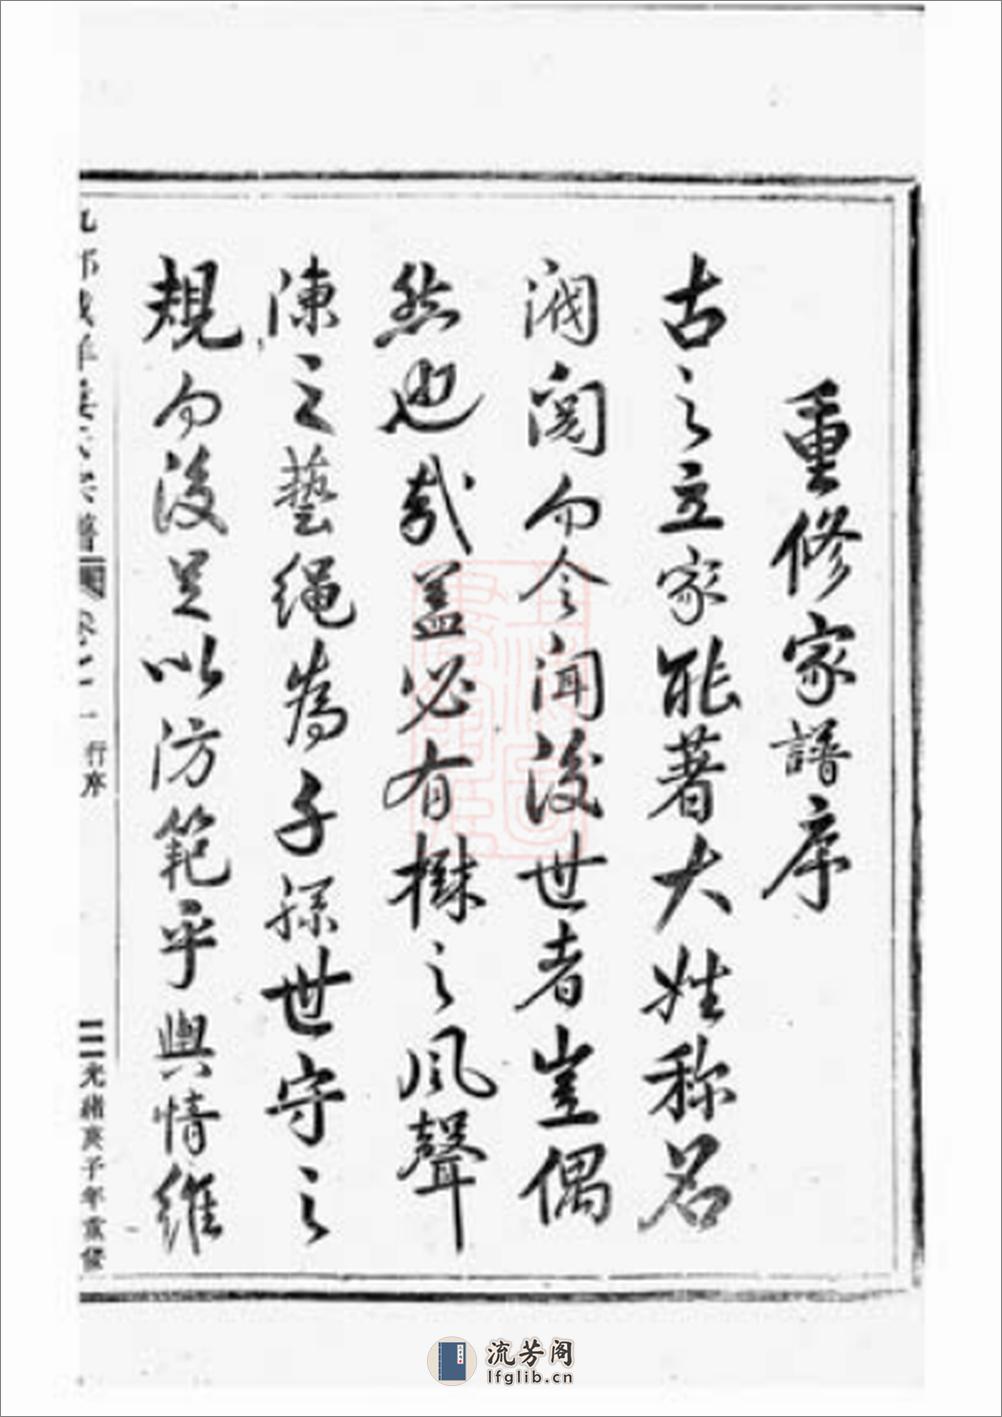 重修家譜序
古之立家能著大姓称名
閥閱而令聞後世者豈偶
然也哉蓋必有樹之風聲
陳之藝繩為子孫世守之
規而後足以防範乎輿情維
宗譜
卷一
行序
光緒庚子年重修
流芳阁
lfglib.cn